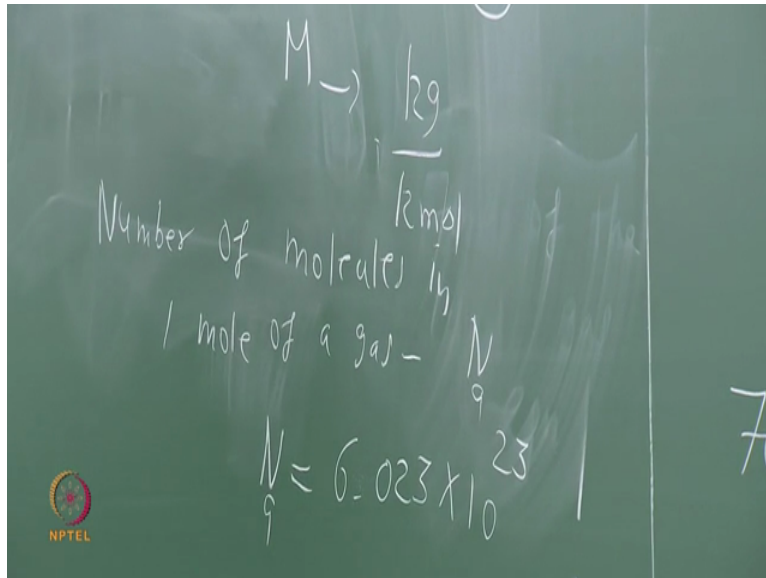 M → kg
kmol
Number of molecules in
1 mole of a gas - Na
Na = 6.023 × 10^23
7
NPTEL